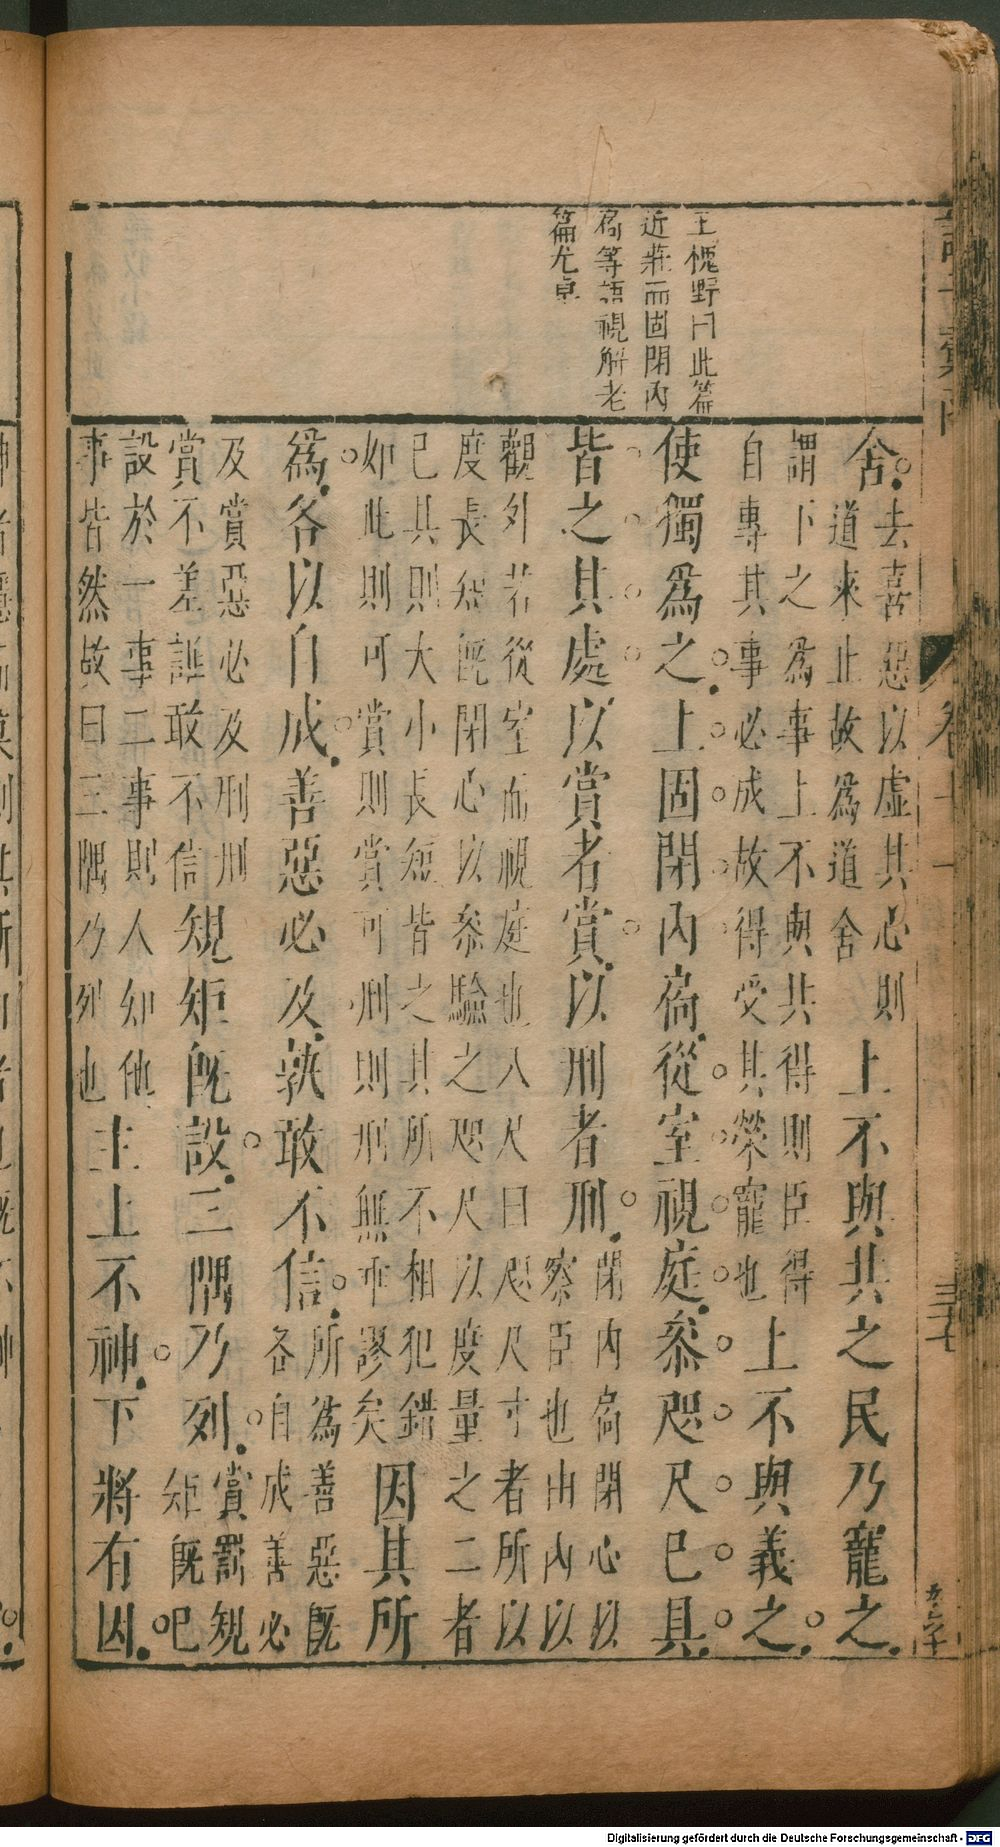 王槐野曰此篇
近莊而固閉內
扃等語視解老
篇尤卓
舍去喜惡以虛其心則
道來止故為道舍
上不與共之民乃寵之
謂下之為事上不與共得則臣得
自專其事必成故得受其榮寵也
上不與義之
使獨為之上固閉內扃從室視庭參咫尺已具
皆之其處以賞者賞以刑者刑
閉內扃閉心以
察臣也由內以
觀外若從室而視庭也八尺曰咫尺寸者所以
度長短既閉心以參驗之咫尺以度量之二者
已其則大小長短皆之其所不相犯錯
如此則可賞則賞可刑則刑無乖謬矣
因其所
為各以自成善惡必及孰敢不信
所為善惡既
各自成善必
及賞惡必及刑刑
賞不差誰敢不信
規矩既設三隅乃列
賞罰規
矩既吧
設於一事二事則人知他
事皆然故曰三隅乃列也
主上不神下將有因
卷十一
三十七
Digitalisierung gefördert durch die Deutsche Forschungsgemeinschaft - DFG